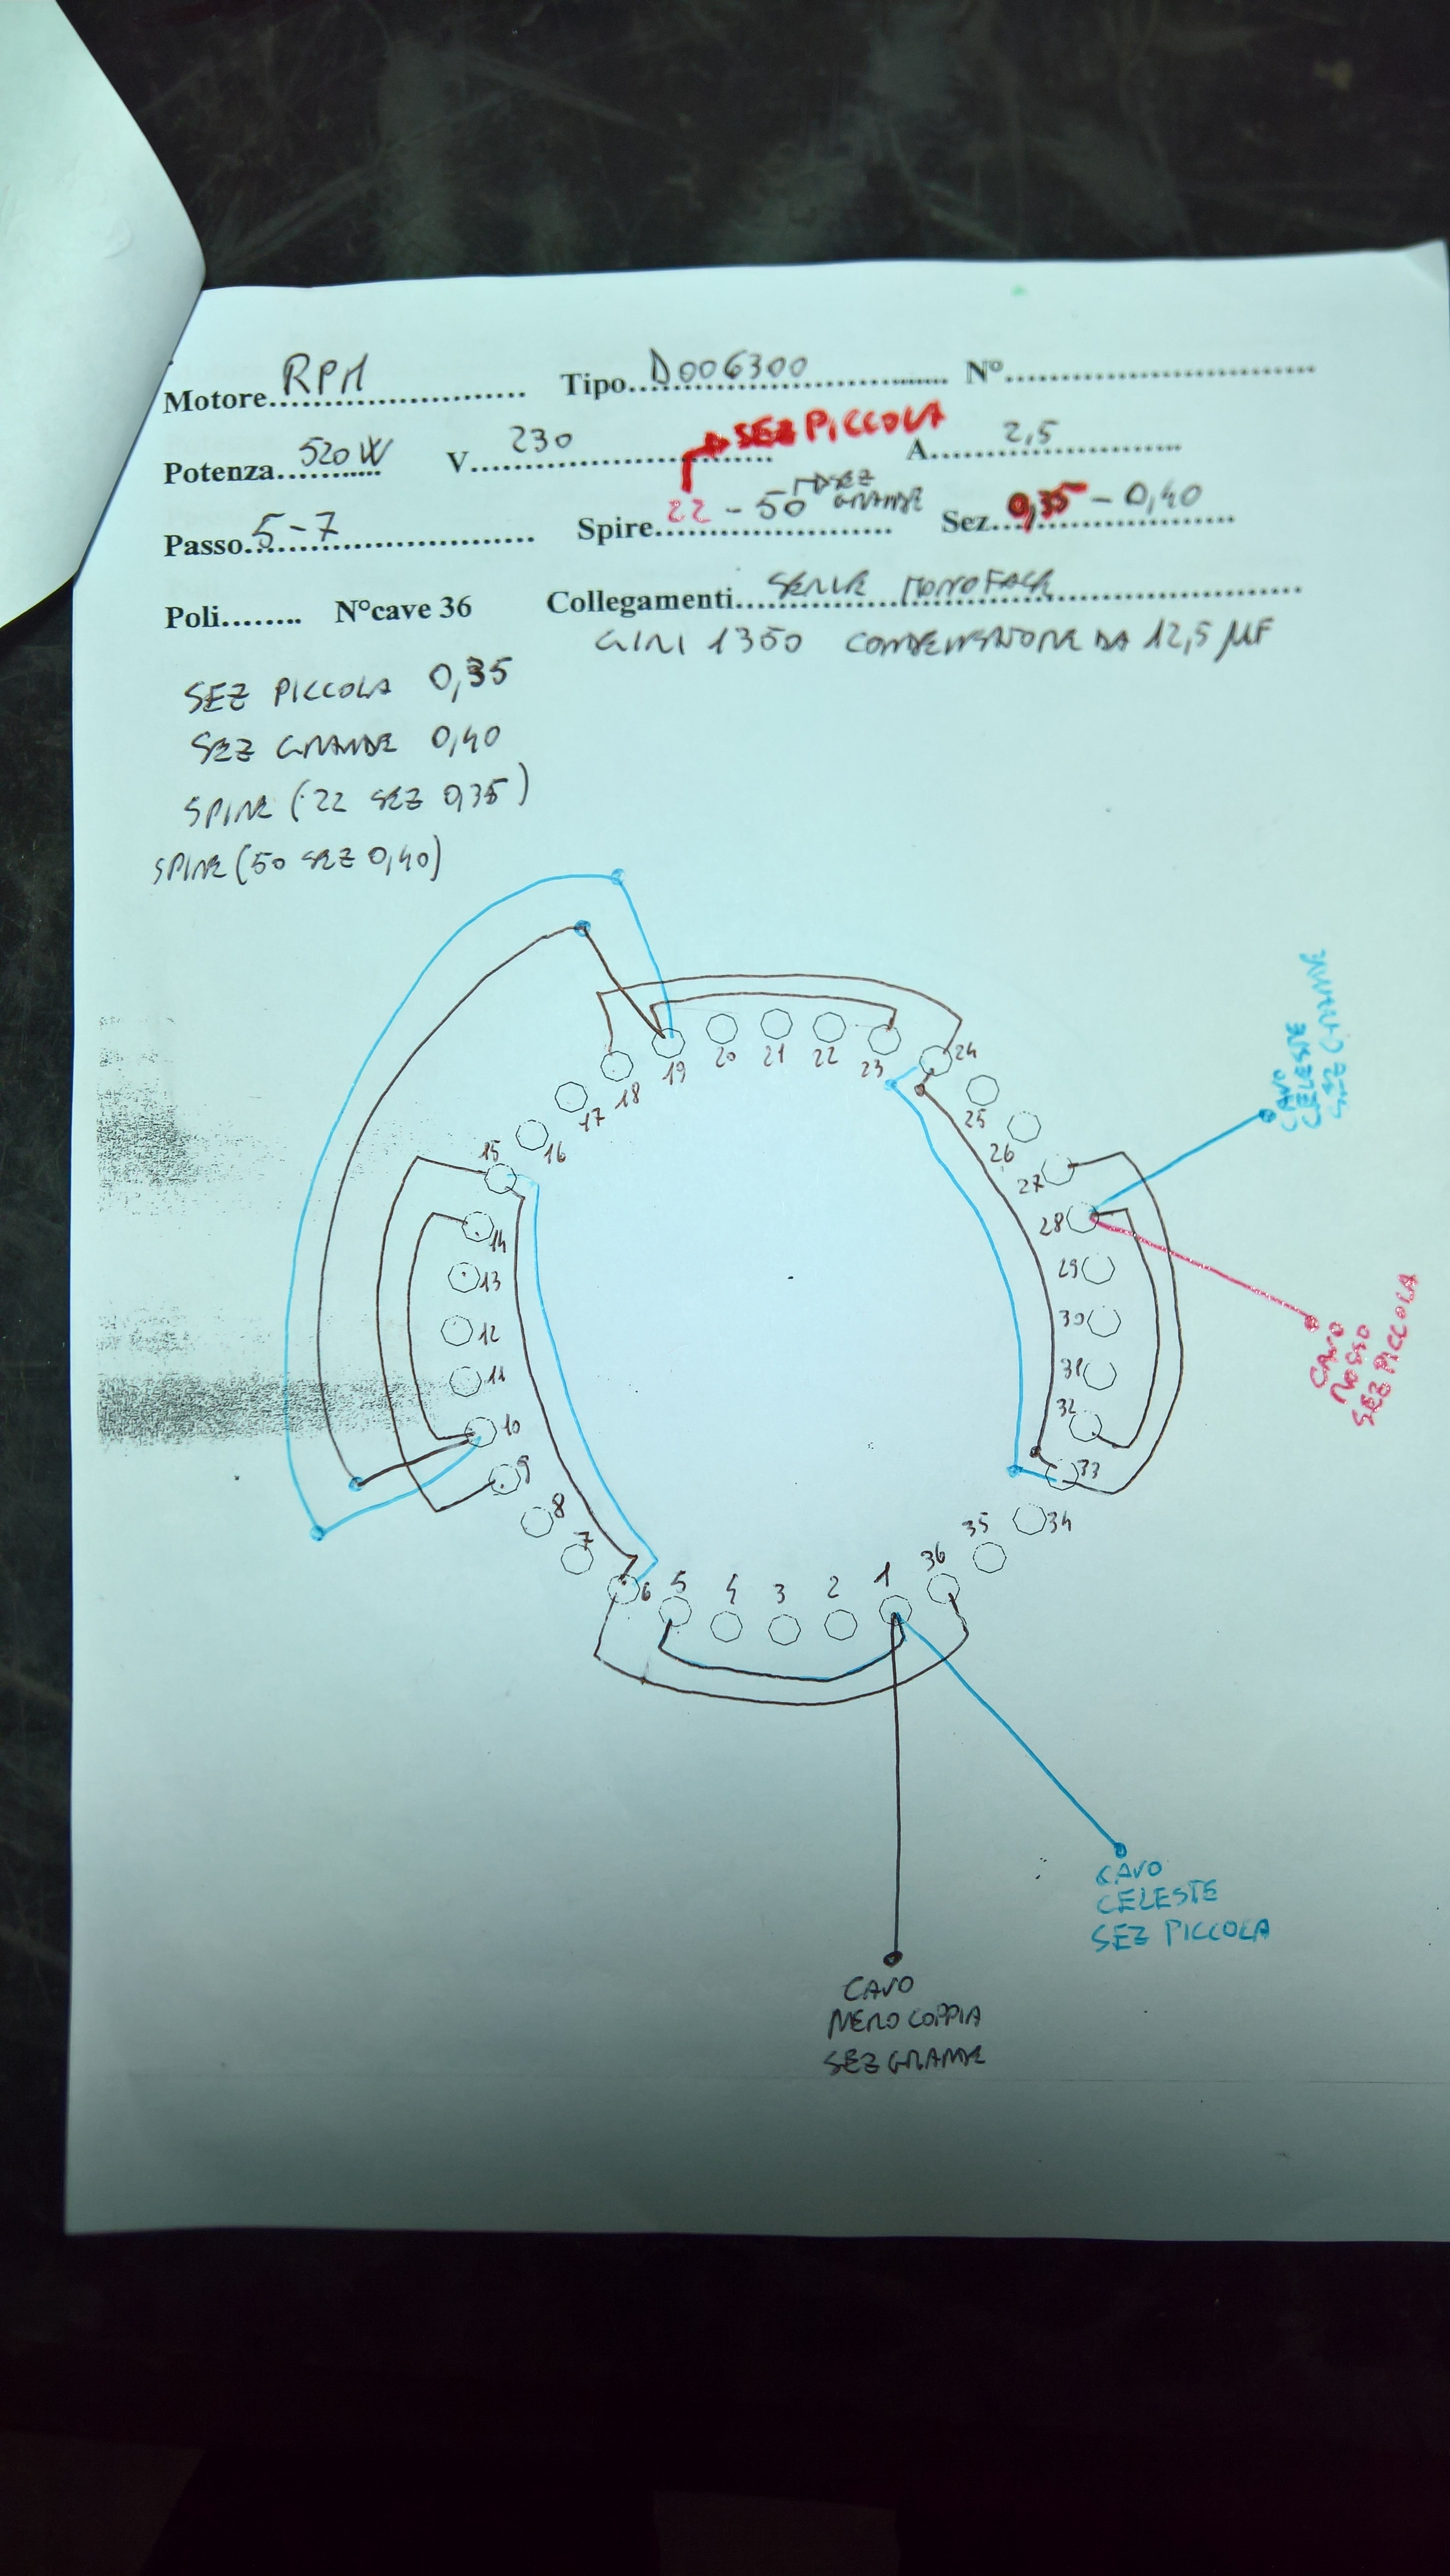 Motore RPM Tipo D006300 N°
SEZ PICCOLA
Potenza 520 W V 230 A 2,5
SEZ
GRANDE
Passo 5-7 Spire 22 - 50 Sez 0,35 - 0,40
Poli N°cave 36 Collegamenti SERIE MONOFASE
GIRI 1350 CONDENSATORE DA 12,5 µF
SEZ PICCOLA 0,35
SEZ GRANDE 0,40
SPIRE (22 SEZ 0,35)
SPIRE (50 SEZ 0,40)
CAVO
CELESTE
SEZ GRANDE
19 20 21 22 23 24
18 25
17 26
15 16 27
14 28
13 29
12 30
11 31
10 32
9 33
8 34
7 35
6 5 4 3 2 1 36
CAVO
ROSSO
SEZ PICCOLA
CAVO
CELESTE
SEZ PICCOLA
CAVO
NERO COPPIA
SEZ GRANDE